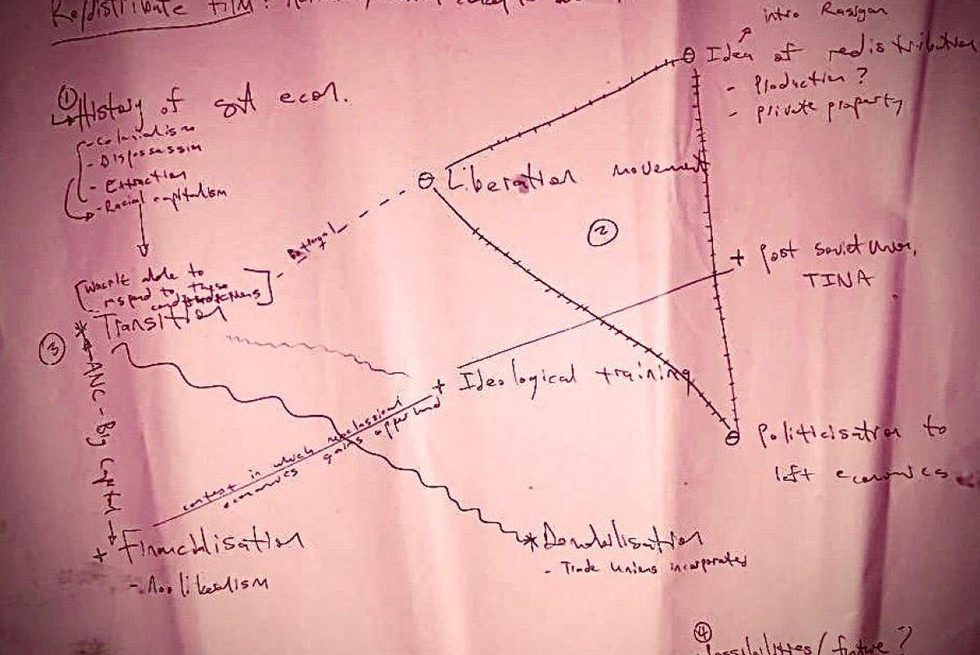 Re/distribute film:
intro Rasigan
① History of SA econ.
- Colonialism
- Dispossession
- Extraction
- Racial capitalism
Idea of redistribution
- Production?
- Private property
Liberation movement
Betrayal
②
[Wasn't able to
respond to these
]
* Transition
③
ANC-Big Cptl
+ Post Soviet Union,
TINA
+ Ideological training
context in which neoclassical
economics gains upper hand
Politicisation to
left economics
+ Financialisation
- Neoliberalism
* Demobilisation
- Trade Unions incorporated
④
Possibilities/future?